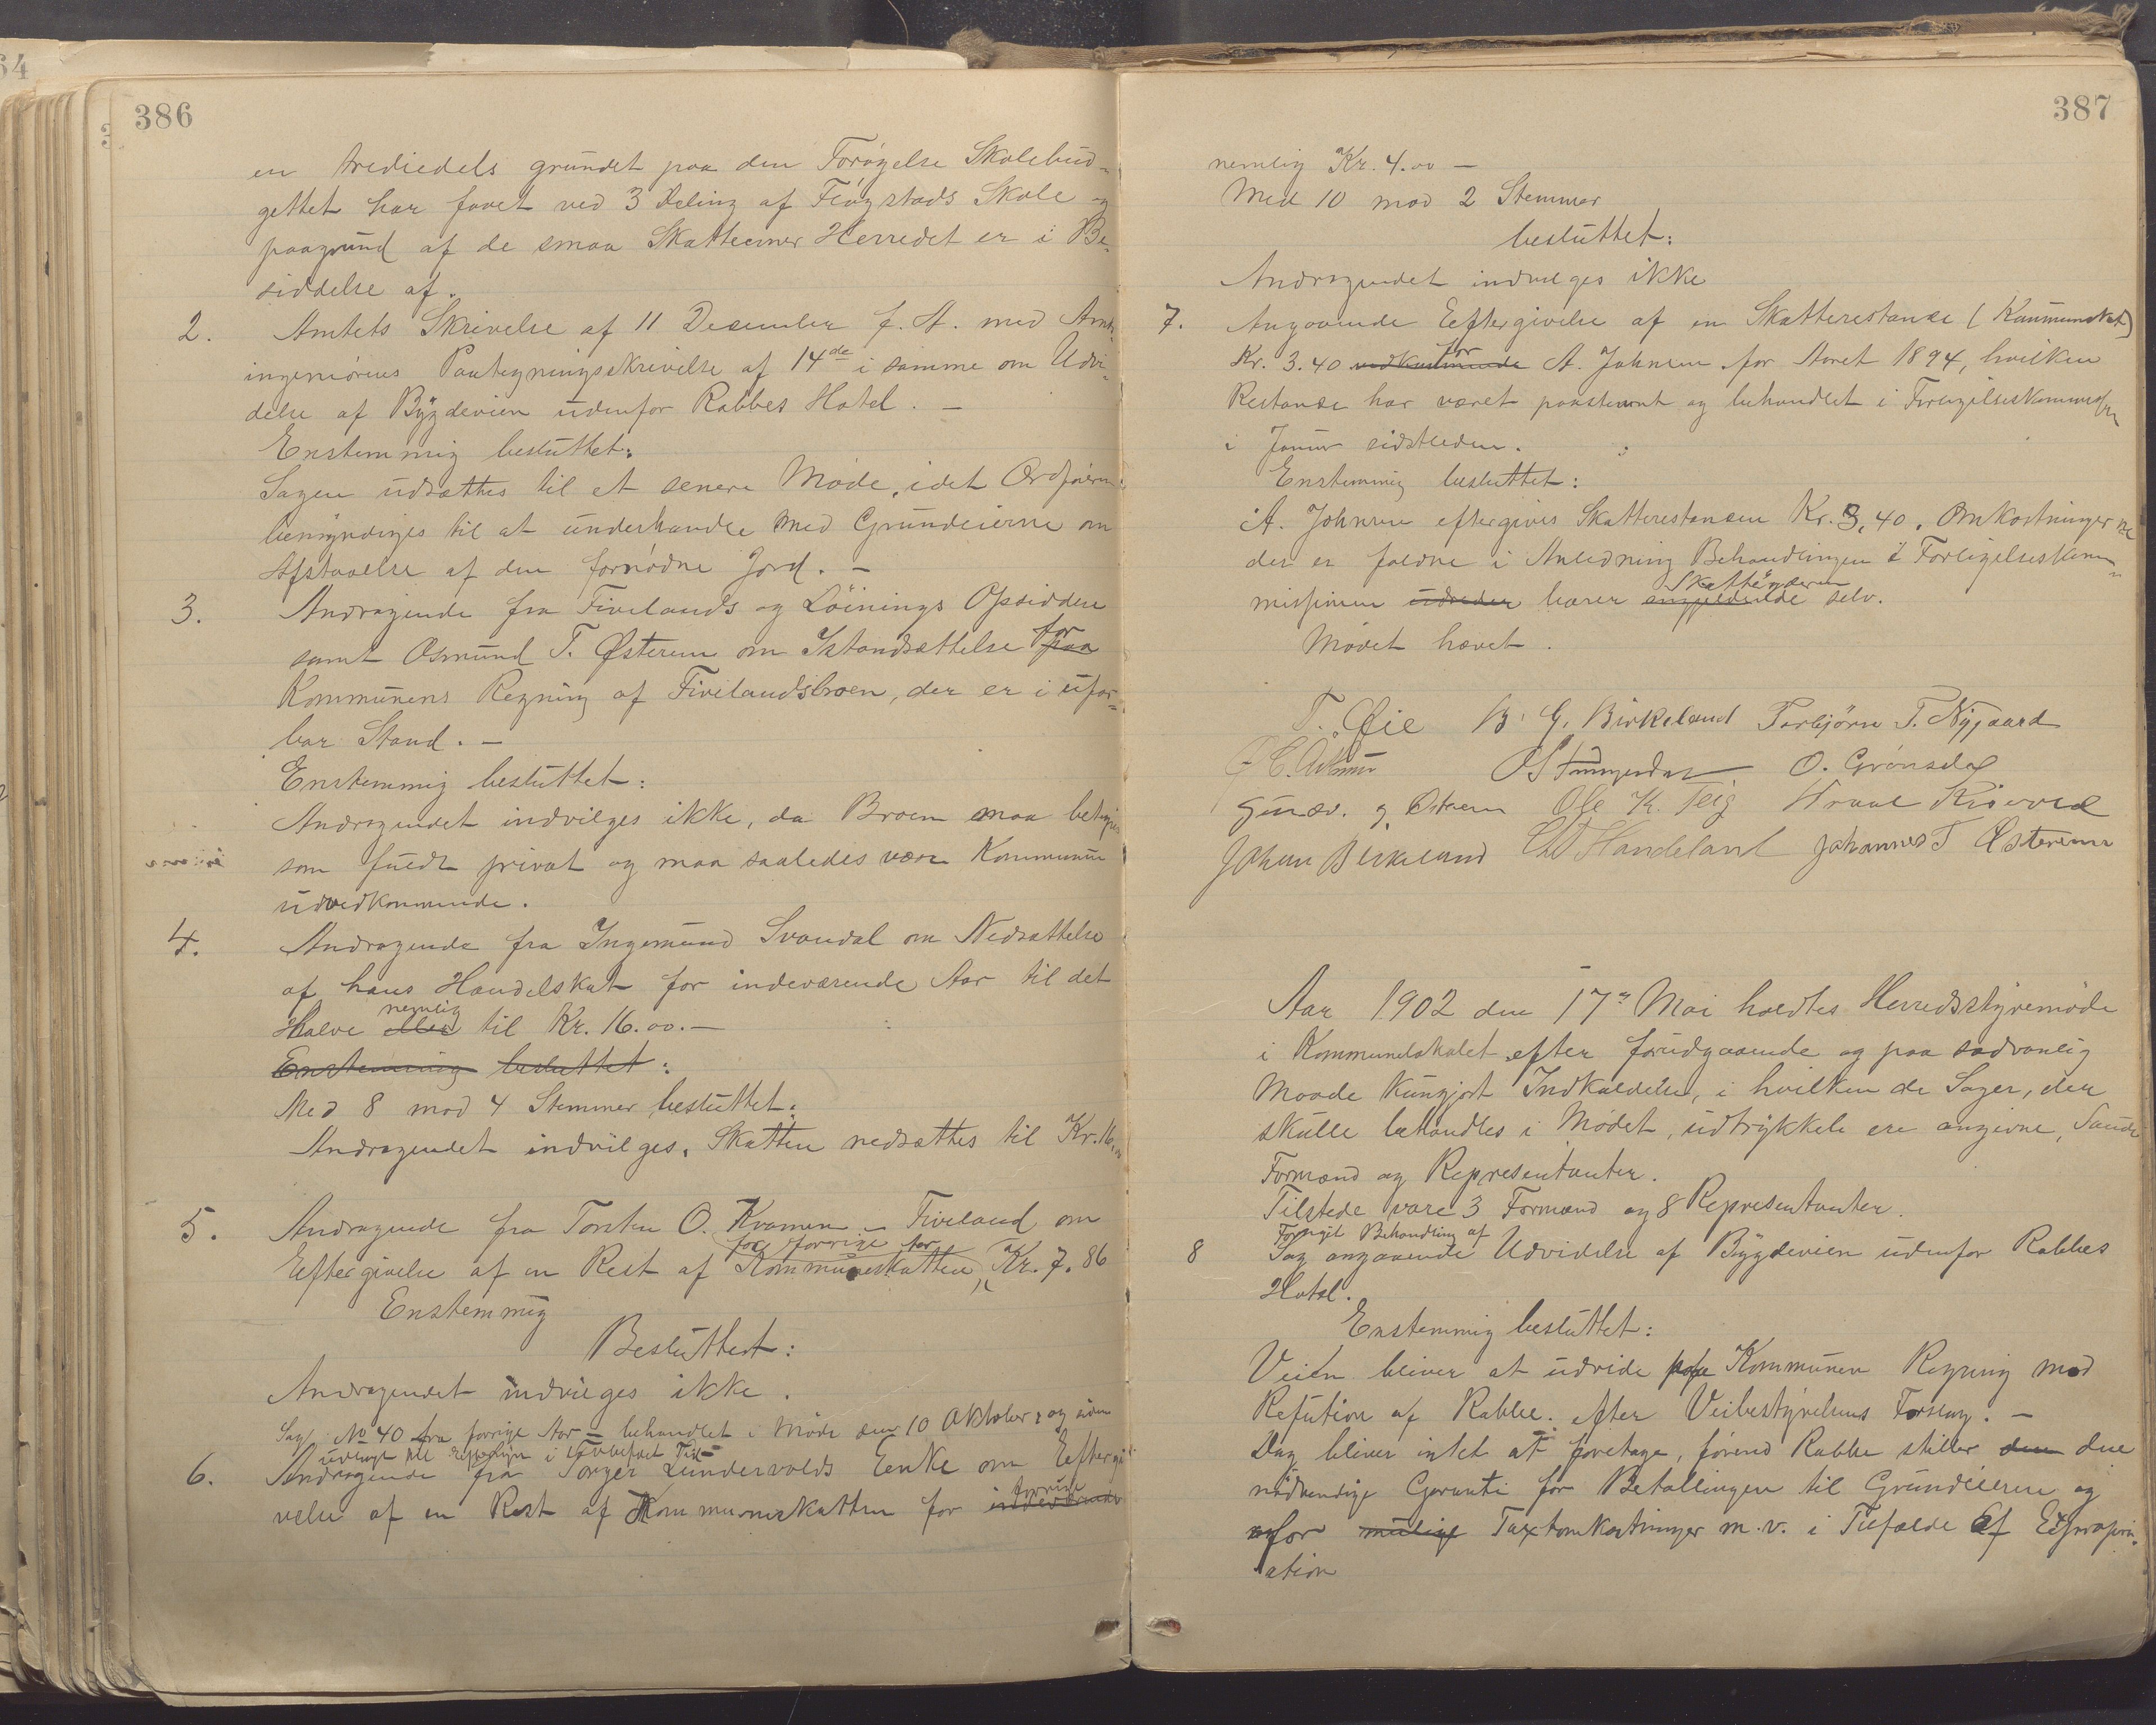 386
en trediedels grundet paa den Forøgelse Skolebud-
gettet har faaet ved 3 Deling af Fløgstads Skole og
paagrund af de smaa Skatteevner Herredet er i Be-
siddelse af.
2. Amtets Skrivelse af 11 December f. A. med Amts
ingeniørens Paategningsskrivelse af 14de i samme om Udvi-
delse af Bygdeveien udenfor Rabbes Hotel. —
Enstemmig besluttet:
Sagen udsættes til et senere Møde, idet Ordføreren
bemyndiges til at underhandle med Grundeierne om
Afstaaelse af den fornødne Jord. —
3. Andragende fra Fivelands og Löinings Opsiddere
samt Osmund T. Østerem om Istandsættelse paa for
Kommunens Regning af Fivelandsbroen, der er i ufar-
bar Stand. —
Enstemmig besluttet:
Andragendet indvilges ikke, da Broen maa betegnes
som fuldt privat og maa saaledes være Kommunen
uvedkommende.
4. Andragende fra Ingemund Svandal om Nedsættelse
af hans Handelskat for indeværende Aar til det
Halve eller nemlig til Kr. 16.00. —
Enstemmig besluttet:
Med 8 mod 4 Stemmer besluttet:
Andragendet indvilges. Skatten nedsættes til Kr. 16.00
5. Andragende fra Torsten O. Kvamen - Fiveland om
for forrige Aar
Eftergivelse af en Rest af Kommuneskatten, Kr. 7.86
Enstemmig
Besluttet:
Andragendet indvilges ikke.
Sag No 40 fra forrige Aar - behandlet i Møde den 10 Oktober, og siden
udlagt til Eftersyn i lovbefalet Tid
6. Andragende fra Torger Lundevolds Enke om Eftergi-
velse af en Rest af Kommuneskatten for indeværende forrige
387
nemlig Kr. 4.00 —
Med 10 mod 2 Stemmer
besluttet:
Andragendet indvilges ikke
7. Angaaende Eftergivelse af en Skatterestance (Kommuneskat)
Kr. 3.40 vedkommende for A. Johnsen for Aaret 1894, hvilken
Restance har været paastevnt og behandlet i Forligelseskommissionen
i Januar sidstleden.
Enstemmig besluttet:
A. Johnsen eftergives Skatterestancen Kr. 3.40. Omkostningerne
der er faldne i Anledning Behandlingen i Forligelseskom-
missionen udreder bærer Skatteyderen selv.
Mødet hævet.
T. Øie B. G. Birkeland Torbjørn T. Nygaard
O. Grønsdal
Gunv. G Østrem Ole K. Teig
Johan Birkeland Chr Handeland Johannes T Østerem
Aar 1902 den 17de Mai holdtes Herredsstyremøde
i Kommunelokalet efter forudgaaende og paa sædvanlig
Maade kungjort Indkaldelse, i hvilken de Sager, der
skulle behandles i Mødet, udtrykkele ere angivne, Samtl
Formænd og Representanter.
Tilstede vare 3 Formænd og 8 Representanter.
Fornyet Behandling af
8 Sag angaaende Udvidelse af Bygdeveien udenfor Rabbes
Hotel.
Enstemmig besluttet:
Veien bliver at udvide for Kommunen Regning mod
Refution af Rabbe. efter Veibestyrelsens Forslag. —
Dog bliver intet at foretage, førend Rabbe stiller den den
nødvendige Garanti for Betallingen til Grundeierne og
for mulige Taxtomkostninger m.v. i Tilfælde af Expropri-
ation